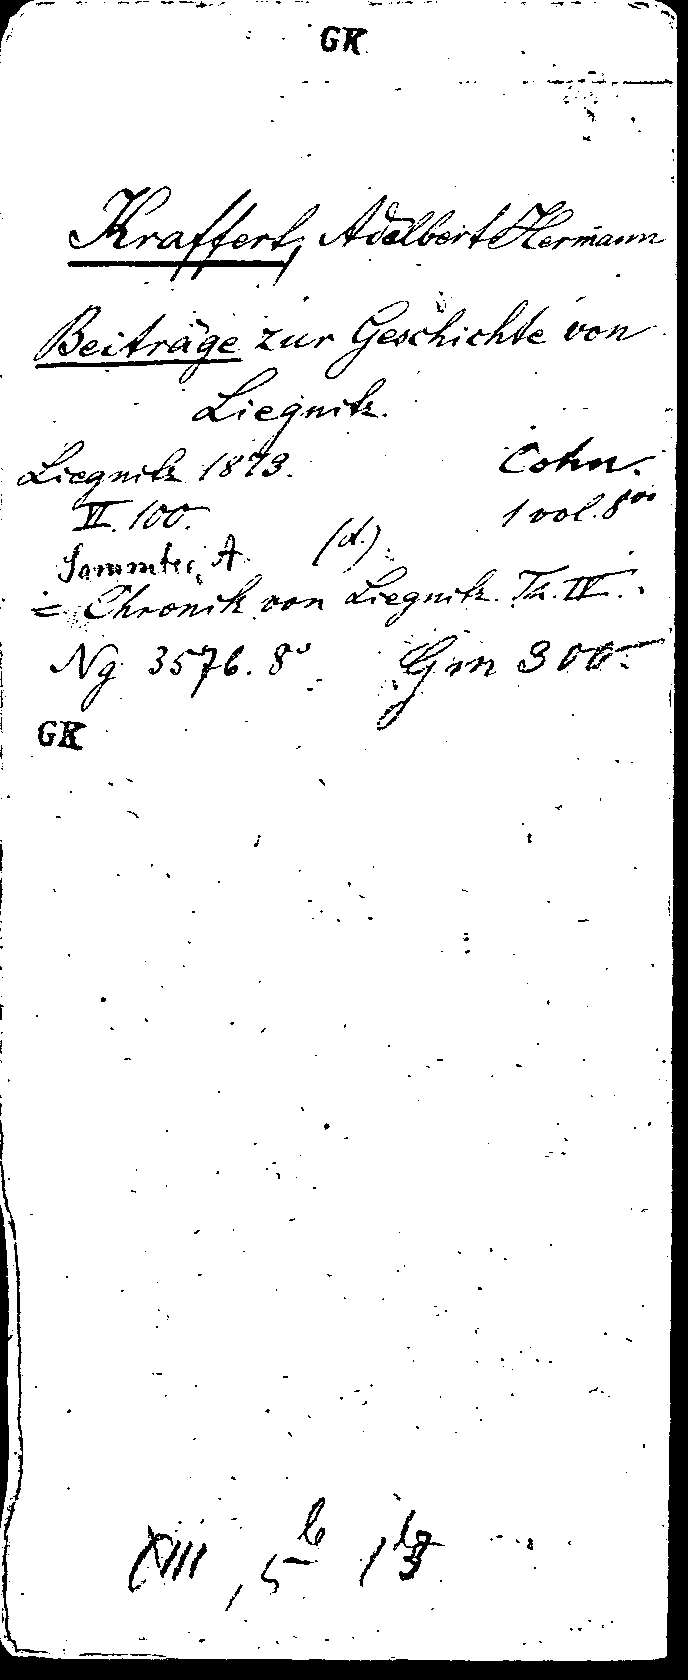 GK
Kraffert, Adalbert Hermann
Beiträge zur Geschichte von
Liegnitz.
Liegnitz 1873. Cohn.
VI. 100. 1 vol. 8vo
(d.)
Sammter, A
= Chronik von Liegnitz. Th. IV.
Ng 3576. 8° Gm 300.
GK
XIII, 5